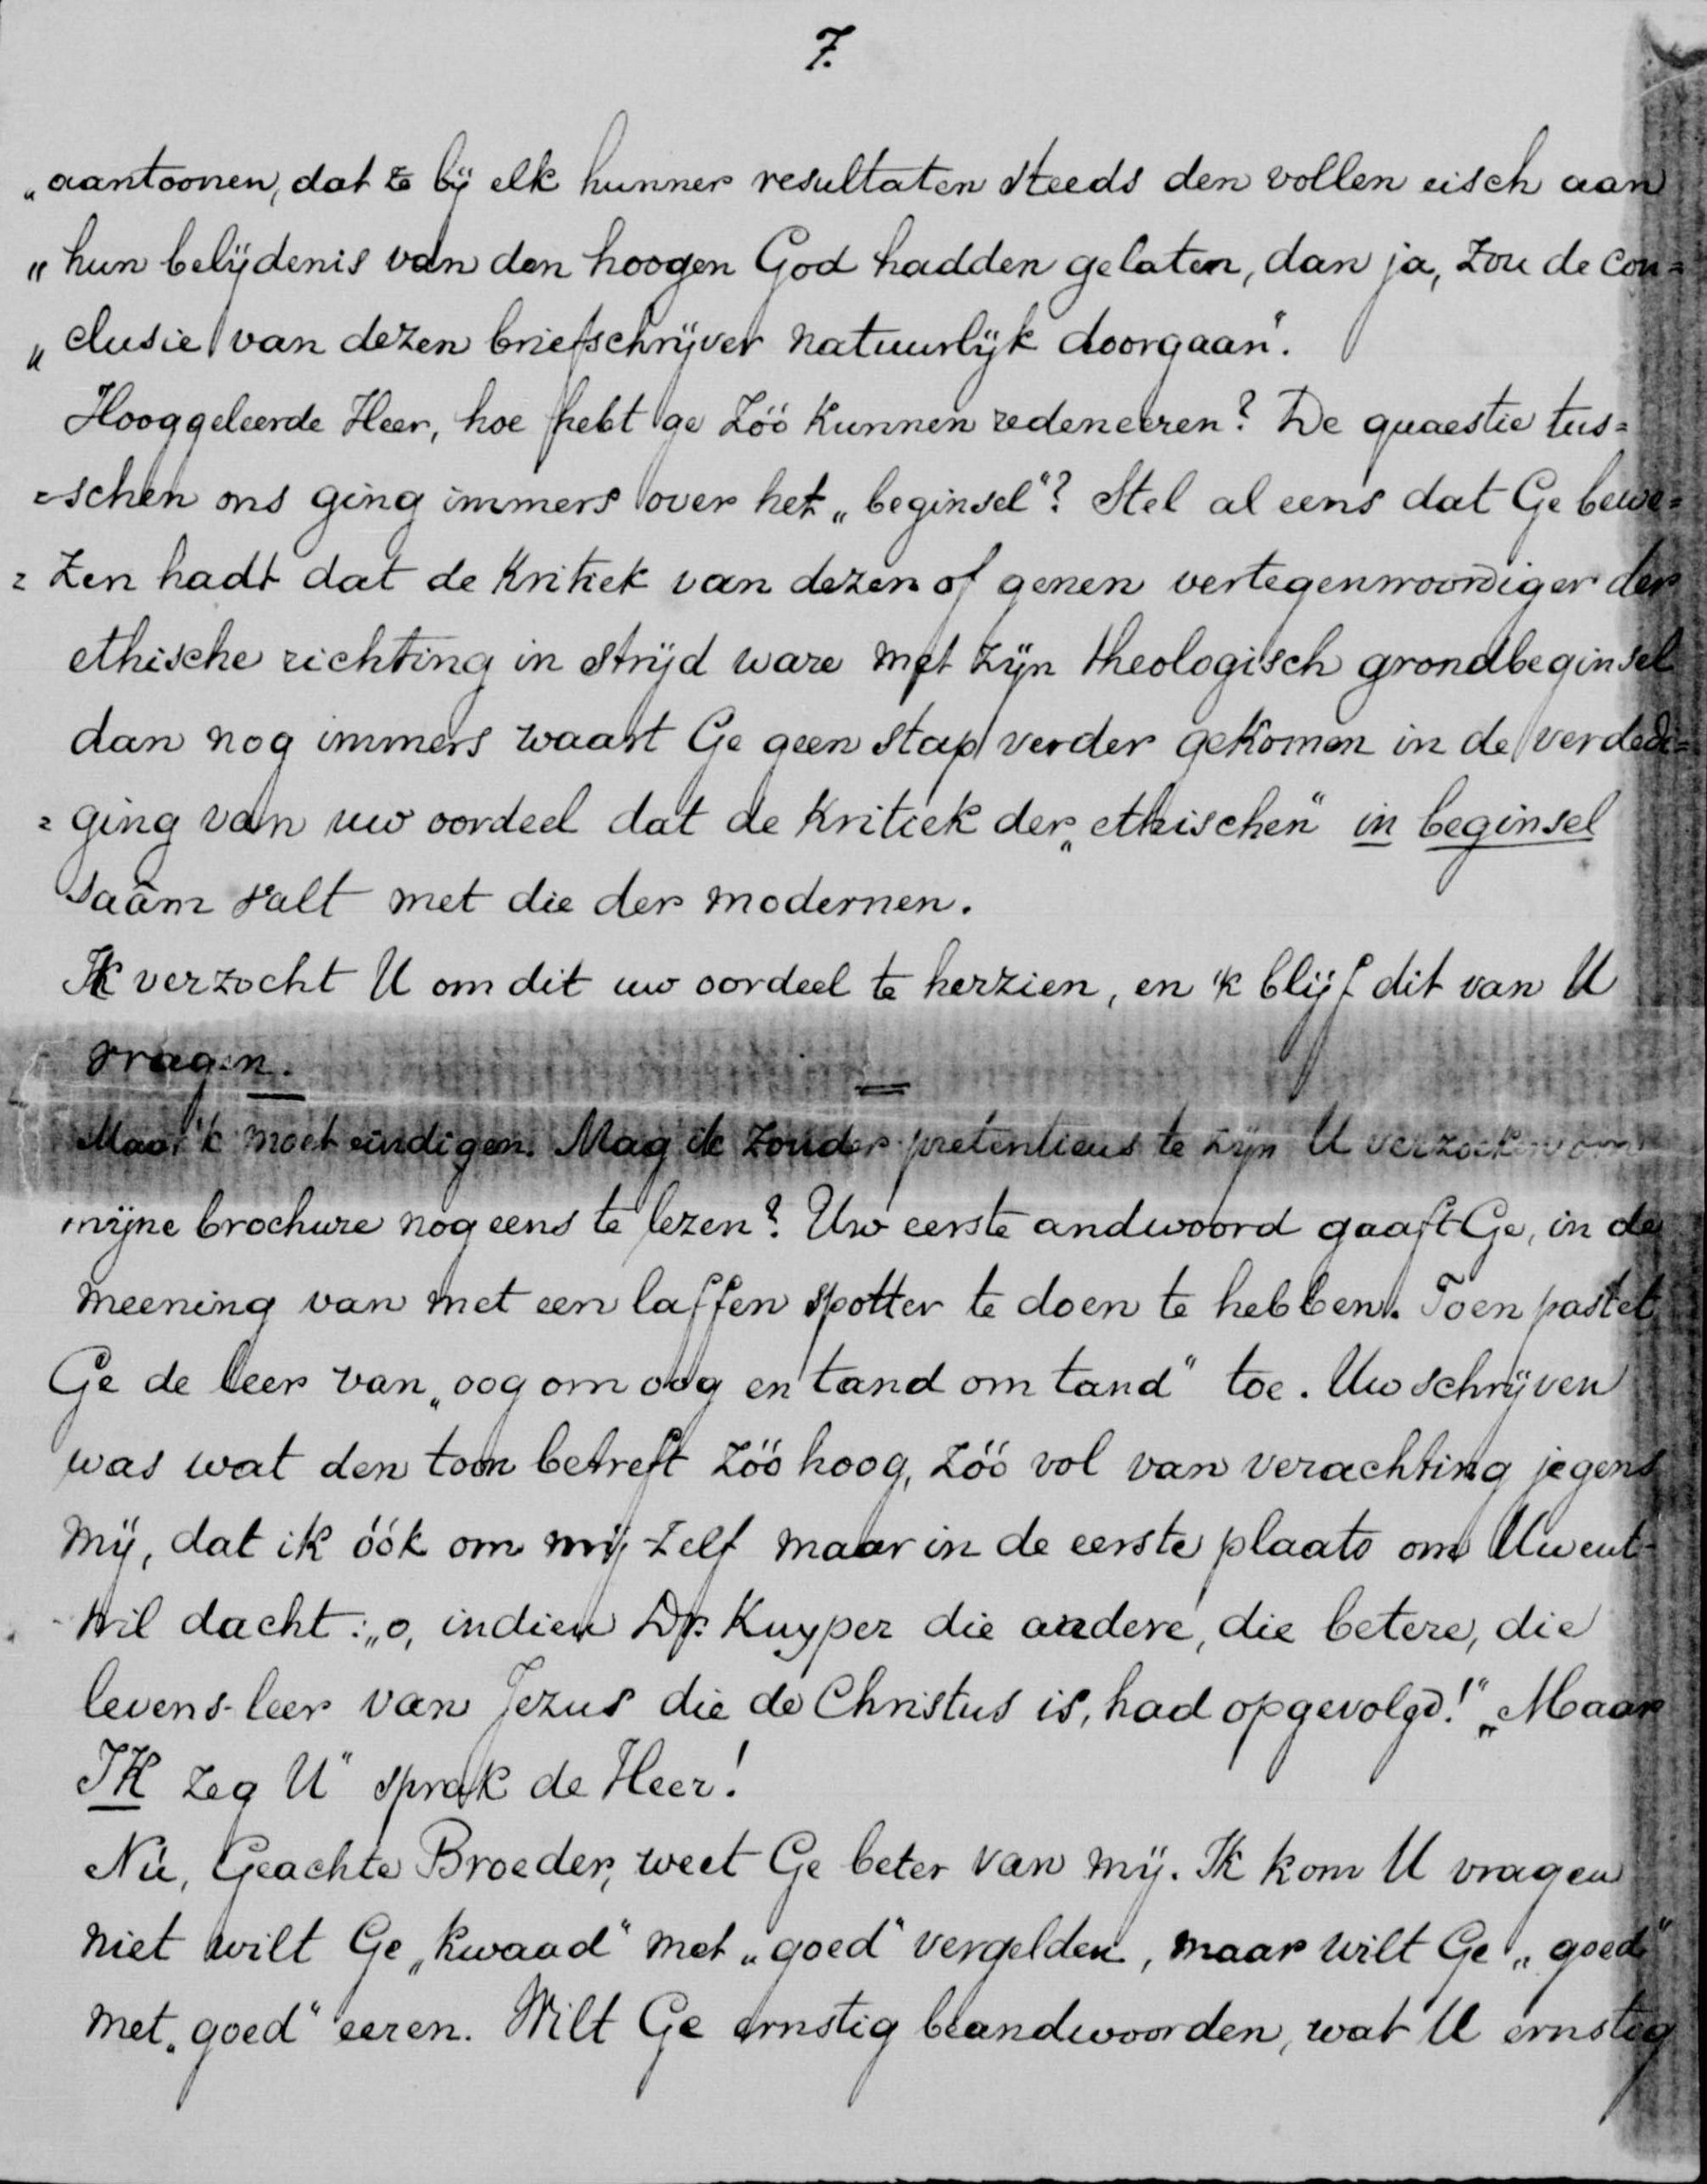 7.
„aantoonen, dat ze bij elk hunner resultaten steeds den vollen eisch aan
„hun belijdenis van den hoogen God hadden gelaten, dan ja, zou de con=
„clusie van dezen briefschrijver natuurlijk doorgaan".
Hooggeleerde Heer, hoe hebt ge zóó kunnen redeneeren? De quaestie tus=
=schen ons ging immers over het „beginsel"? Stel al eens dat Ge bewe=
=zen hadt dat de kritiek van dezen of genen vertegenwoordiger der
ethische richting in strijd ware met zijn theologisch grondbeginsel
dan nog immers waart Ge geen stap verder gekomen in de verdedi=
=ging van uw oordeel dat de kritiek der „ethischen" in beginsel
saâm valt met die der modernen.
Ik verzocht U om dit uw oordeel te herzien, en 'k blijf dit van U
vragen.
Maar 'k moet eindigen. Mag ik zonder pretentieus te zijn U verzoeken om
mijne brochure nog eens te lezen? Uw eerste andwoord gaaft Ge, in de
meening van met een laffen spotter te doen te hebben. Toen pastet
Ge de leer van „oog om oog en tand om tand" toe. Uw schrijven
was wat den toon betreft zóó hoog, zóó vol van verachting jegens
mij, dat ik óók om mij-zelf maar in de eerste plaats om Uwent-
-wil dacht: „o, indien Dr. Kuyper die andere, die betere, die
levens-leer van Jezus die de Christus is, had opgevolgd!" „Maar
IK zeg U" sprak de Heer!
Nú, Geachte Broeder, weet Ge beter van mij. Ik kom U vragen
niet wilt Ge „kwaad" met „goed" vergelden, maar wilt Ge „goed"
met „goed" eeren. Wilt Ge ernstig beandwoorden, wat U ernstig